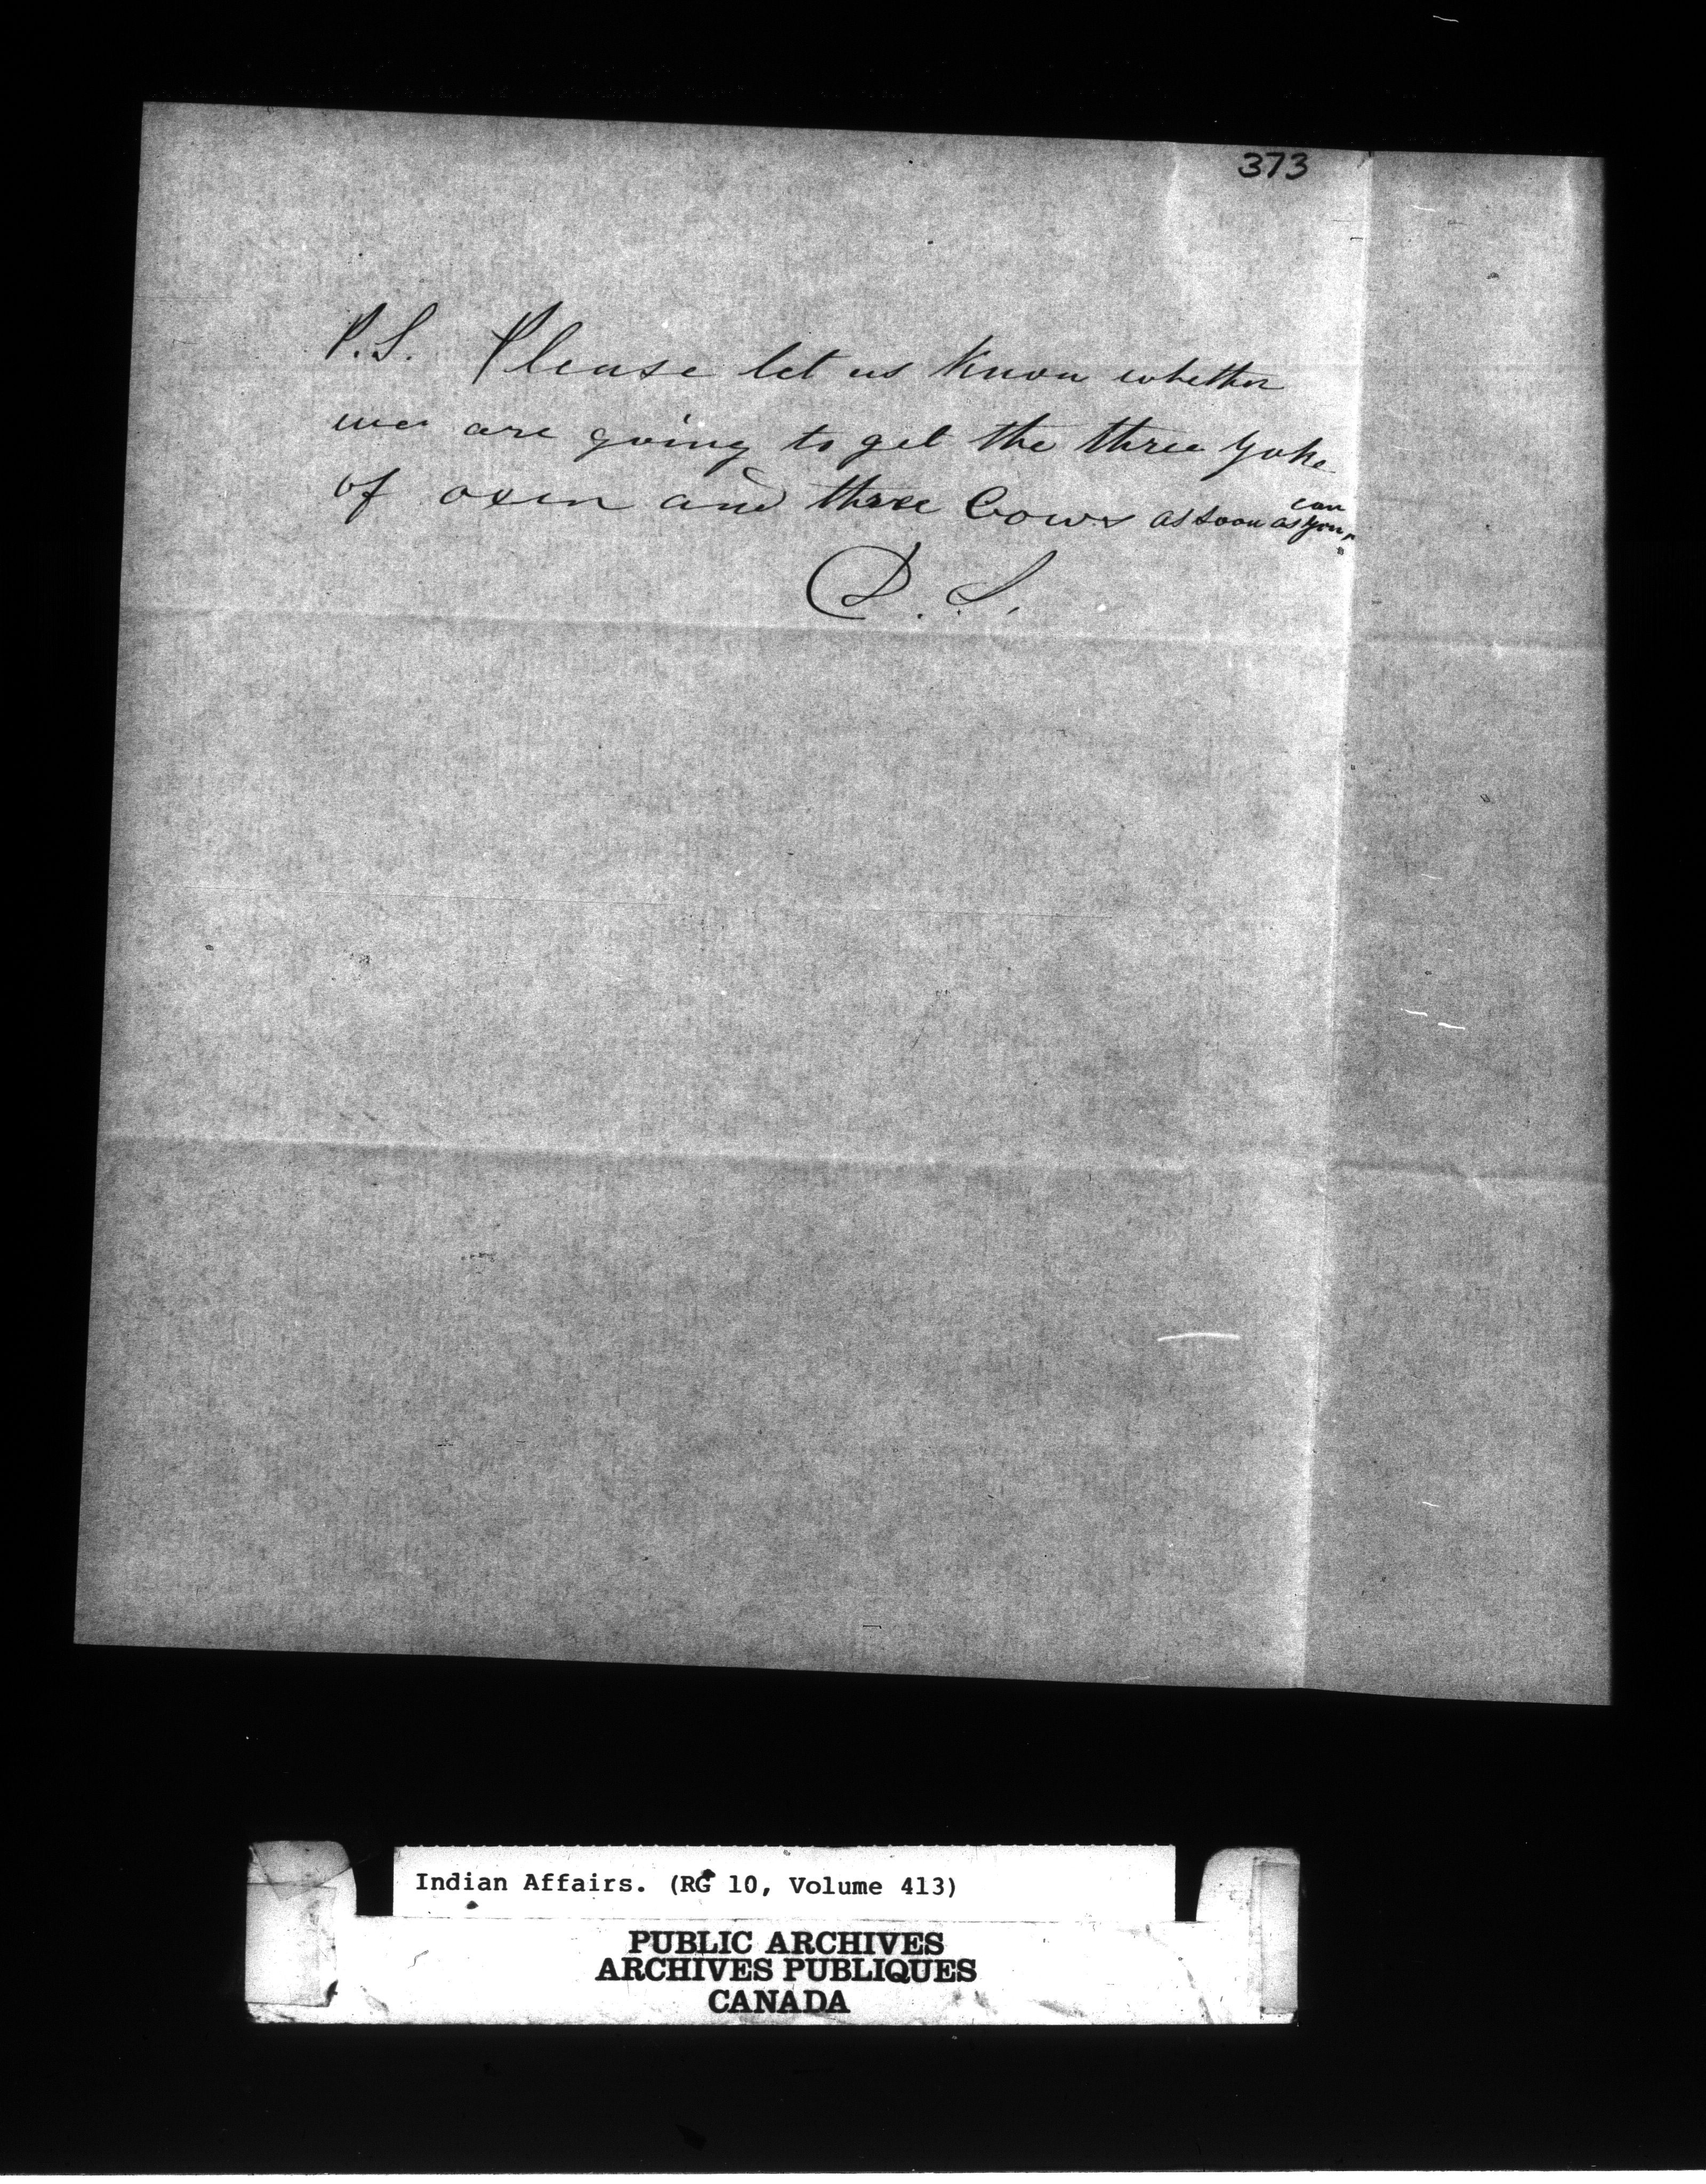 373
P.S. Please let us know whether
we are going to get the three yoke
of oxen and three Cows as soon as you can
D. S.
Indian Affairs. (RG 10, Volume 413)
PUBLIC ARCHIVES
ARCHIVES PUBLIQUES
CANADA